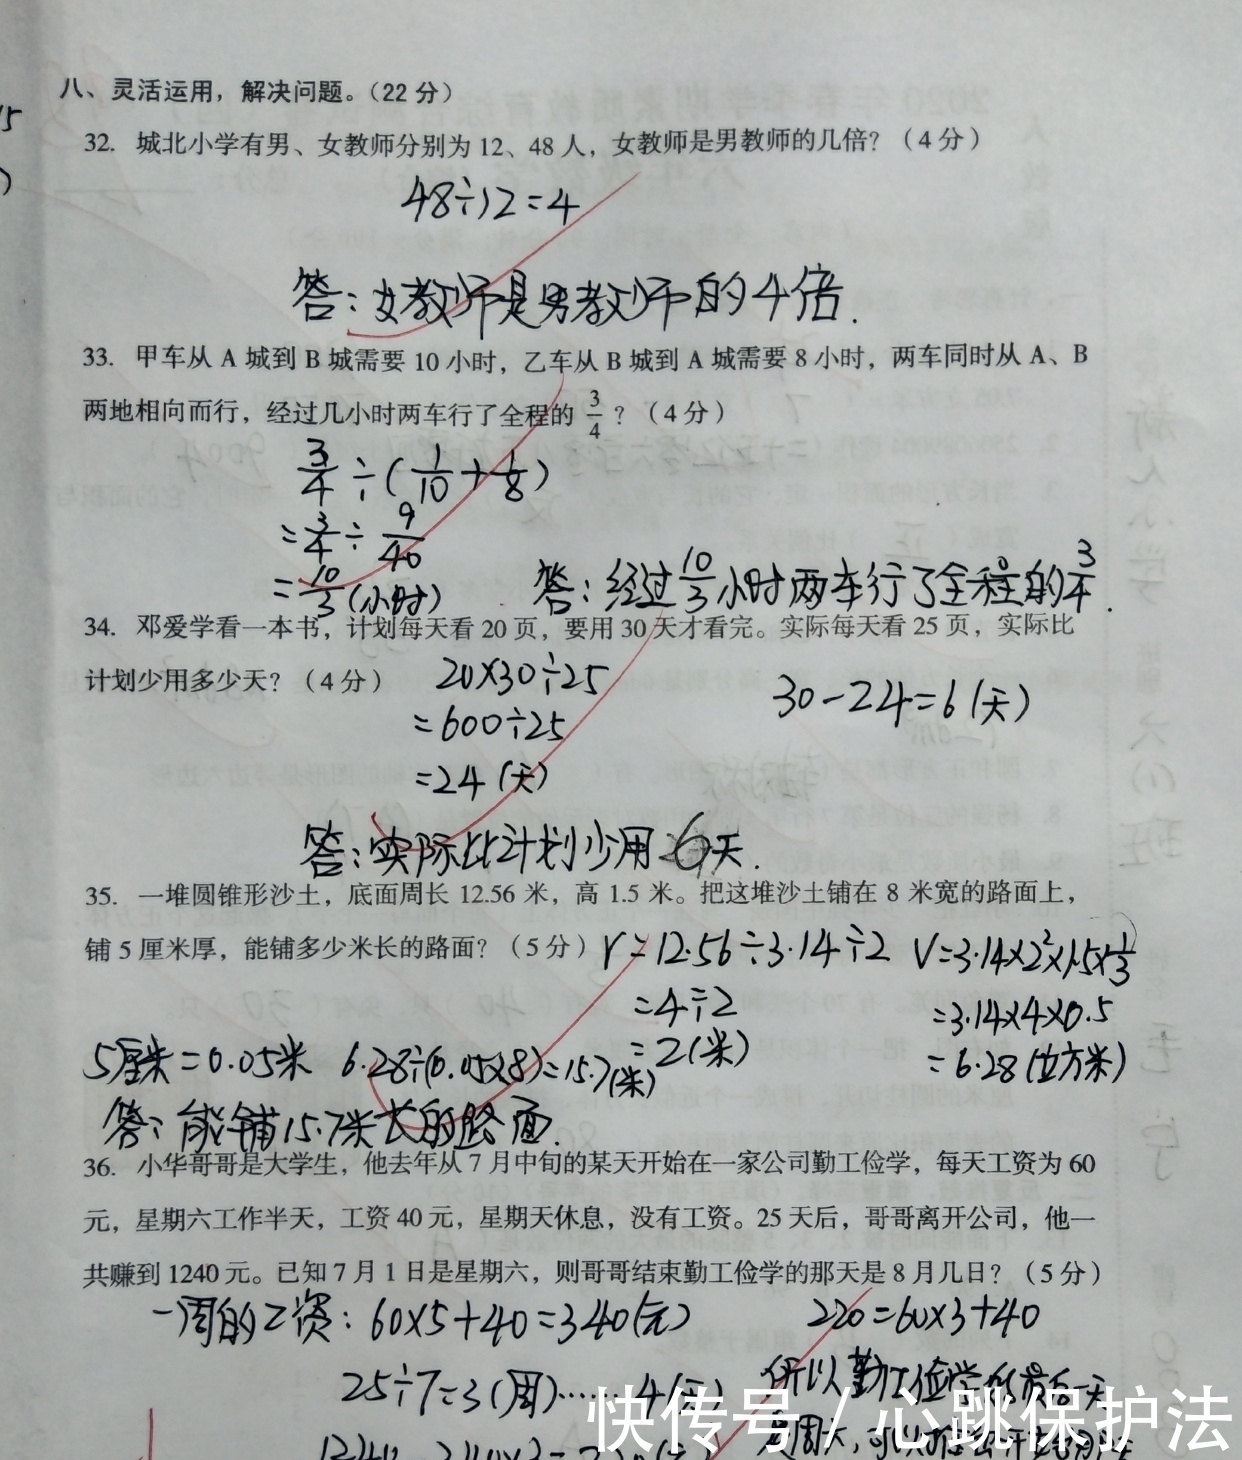 八、灵活运用，解决问题。（22 分）
32. 城北小学有男、女教师分别为 12、48 人，女教师是男教师的几倍？（4 分）
48÷12=4
答：女教师是男教师的4倍.
33. 甲车从 A 城到 B 城需要 10 小时，乙车从 B 城到 A 城需要 8 小时，两车同时从 A、B
两地相向而行，经过几小时两车行了全程的 3/4 ？（4 分）
3/4÷(1/10+1/8)
=3/4÷9/40
=10/3(小时)
答：经过10/3小时两车行了全程的3/4.
34. 邓爱学看一本书，计划每天看 20 页，要用 30 天才看完。实际每天看 25 页，实际比
计划少用多少天？（4 分）
20×30÷25
=600÷25
=24(天)
30-24=6(天)
答：实际比计划少用6天.
35. 一堆圆锥形沙土，底面周长 12.56 米，高 1.5 米。把这堆沙土铺在 8 米宽的路面上，
铺 5 厘米厚，能铺多少米长的路面？（5 分）
r=12.56÷3.14÷2
=4÷2
=2(米)
V=3.14×2²×1.5×1/3
=3.14×4×0.5
=6.28(立方米)
5厘米=0.05米 6.28÷(0.05×8)=15.7(米)
答：能铺15.7米长的路面.
36. 小华哥哥是大学生，他去年从 7 月中旬的某天开始在一家公司勤工俭学，每天工资为 60
元，星期六工作半天，工资 40 元，星期天休息，没有工资。25 天后，哥哥离开公司，他一
共赚到 1240 元。已知 7 月 1 日是星期六，则哥哥结束勤工俭学的那天是 8 月几日？（5 分）
一周的工资：60×5+40=340(元)
25÷7=3(周)……4(天)
220=60×3+40
所以勤工俭学的最后一天
快传号 / 心跳保护法